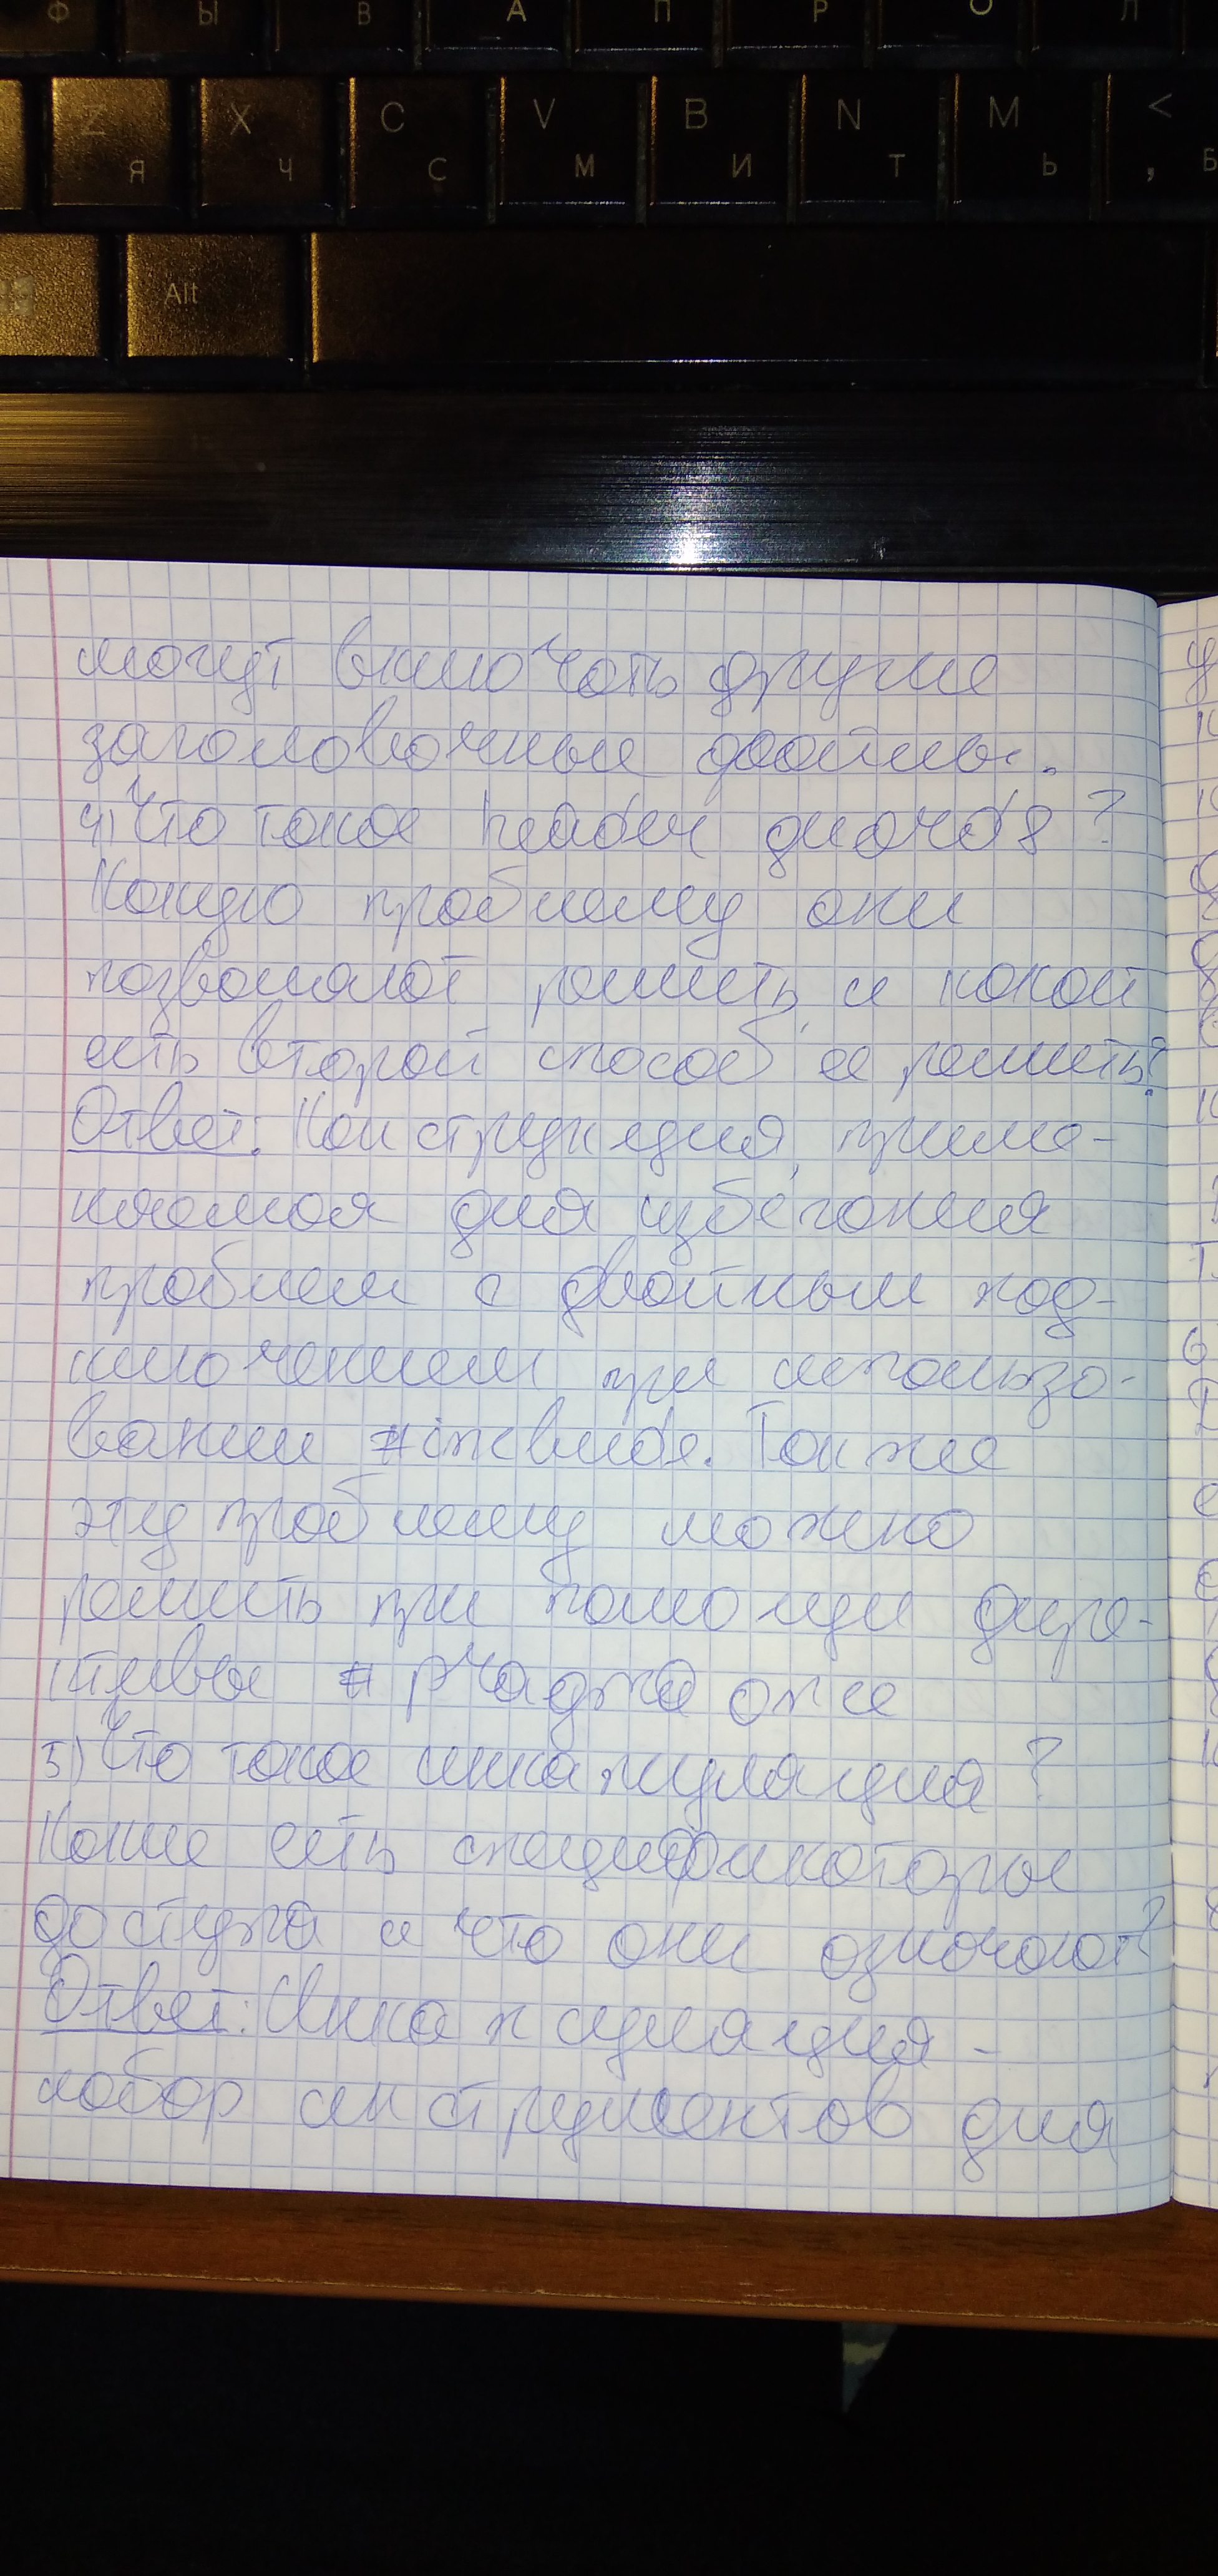 Ф Ы В А П Р О Л
Z Я X Ч C С V М B И N Т M Ь < , Б
Alt
могут включать другие
заголовочные файлы.
4) Что такое header guards?
Какую проблему они
позволяют решить, и какой
есть второй способ её решить?
Ответ: Конструкция, приме-
няемая для избегания
проблем с двойным под-
ключением при использо-
вании #include. Также
эту проблему можно
решить при помощи дире-
ктивы # pragma one
5) Что такое инкапуляция?
Какие есть спецификаторы
доступа и что они означают?
Ответ: Инкапсуляция -
набор инструментов для